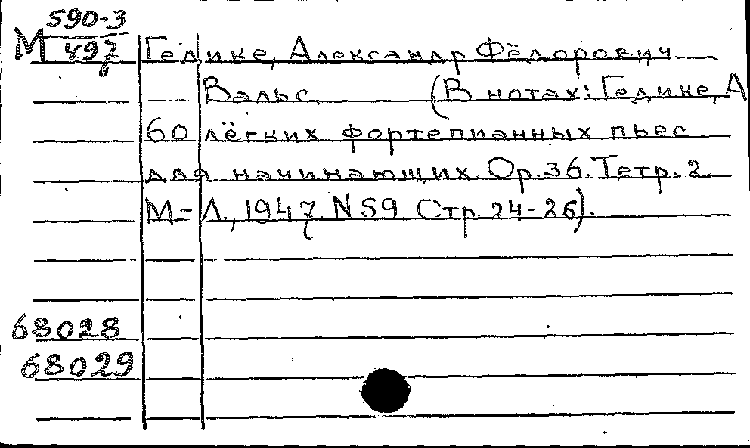 590-3
М 497
Гедике, Александр Фёдорович
Вальс (В нотах: Гедике, А
60 лёгких фортепианных пьес
для начинающих. Ор. 36. Тетр. 2
М-Л., 1947. N 59 Стр 24-26).
68028
68029